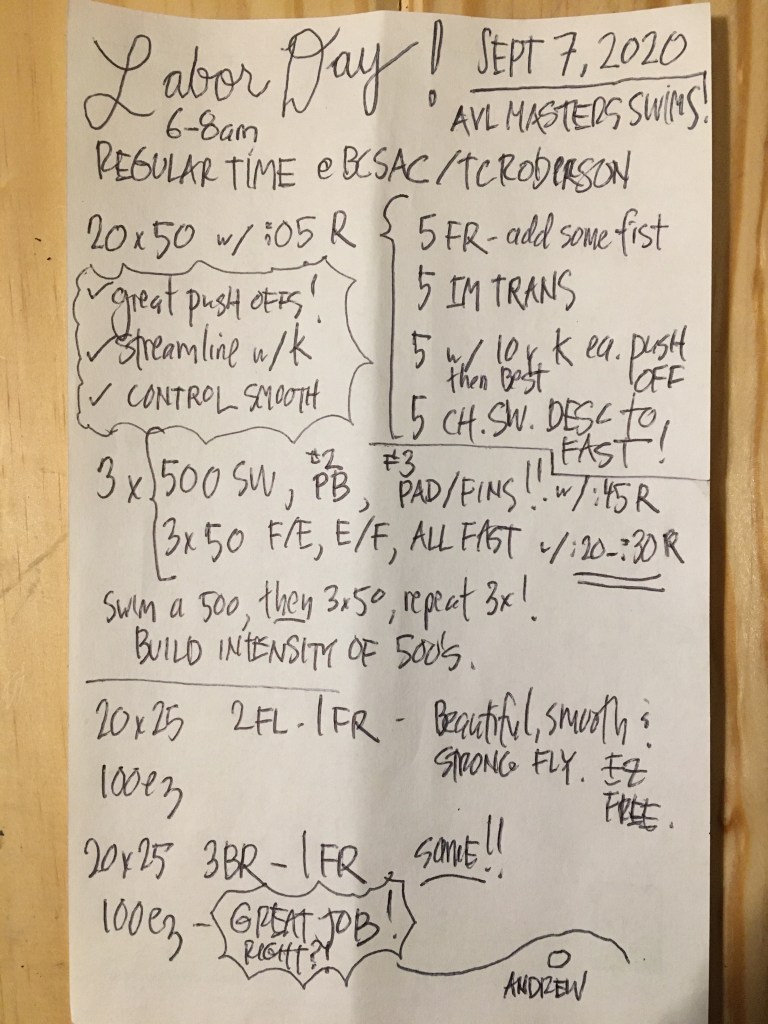 Labor Day!
SEPT 7, 2020
6-8am
AVL MASTERS SWIMS!
REGULAR TIME @ BCSAC/TC ROBERSON
20x50 w/ :05 R
5 FR - add some fist
5 IM TRANS
5 w/ 10 x K ea. push OFF
then Best
5 CH. SW. DESC to FAST!
✓ great push OFFS!
✓ streamline w/K
✓ CONTROL SMOOTH
3x 500 SW, #2 PB, #3 PAD/FINS!! w/ :45 R
3x50 F/E, E/F, ALL FAST w/ :20-:30 R
Swim a 500, then 3x50, repeat 3x!
BUILD INTENSITY OF 500's.
20x25 2FL - 1FR - Beautiful, smooth &
STRONG FLY. EZ
FREE.
100ez
20x25 3BR - 1FR same!!
100ez - GREAT JOB!
RIGHT?!
ANDREW